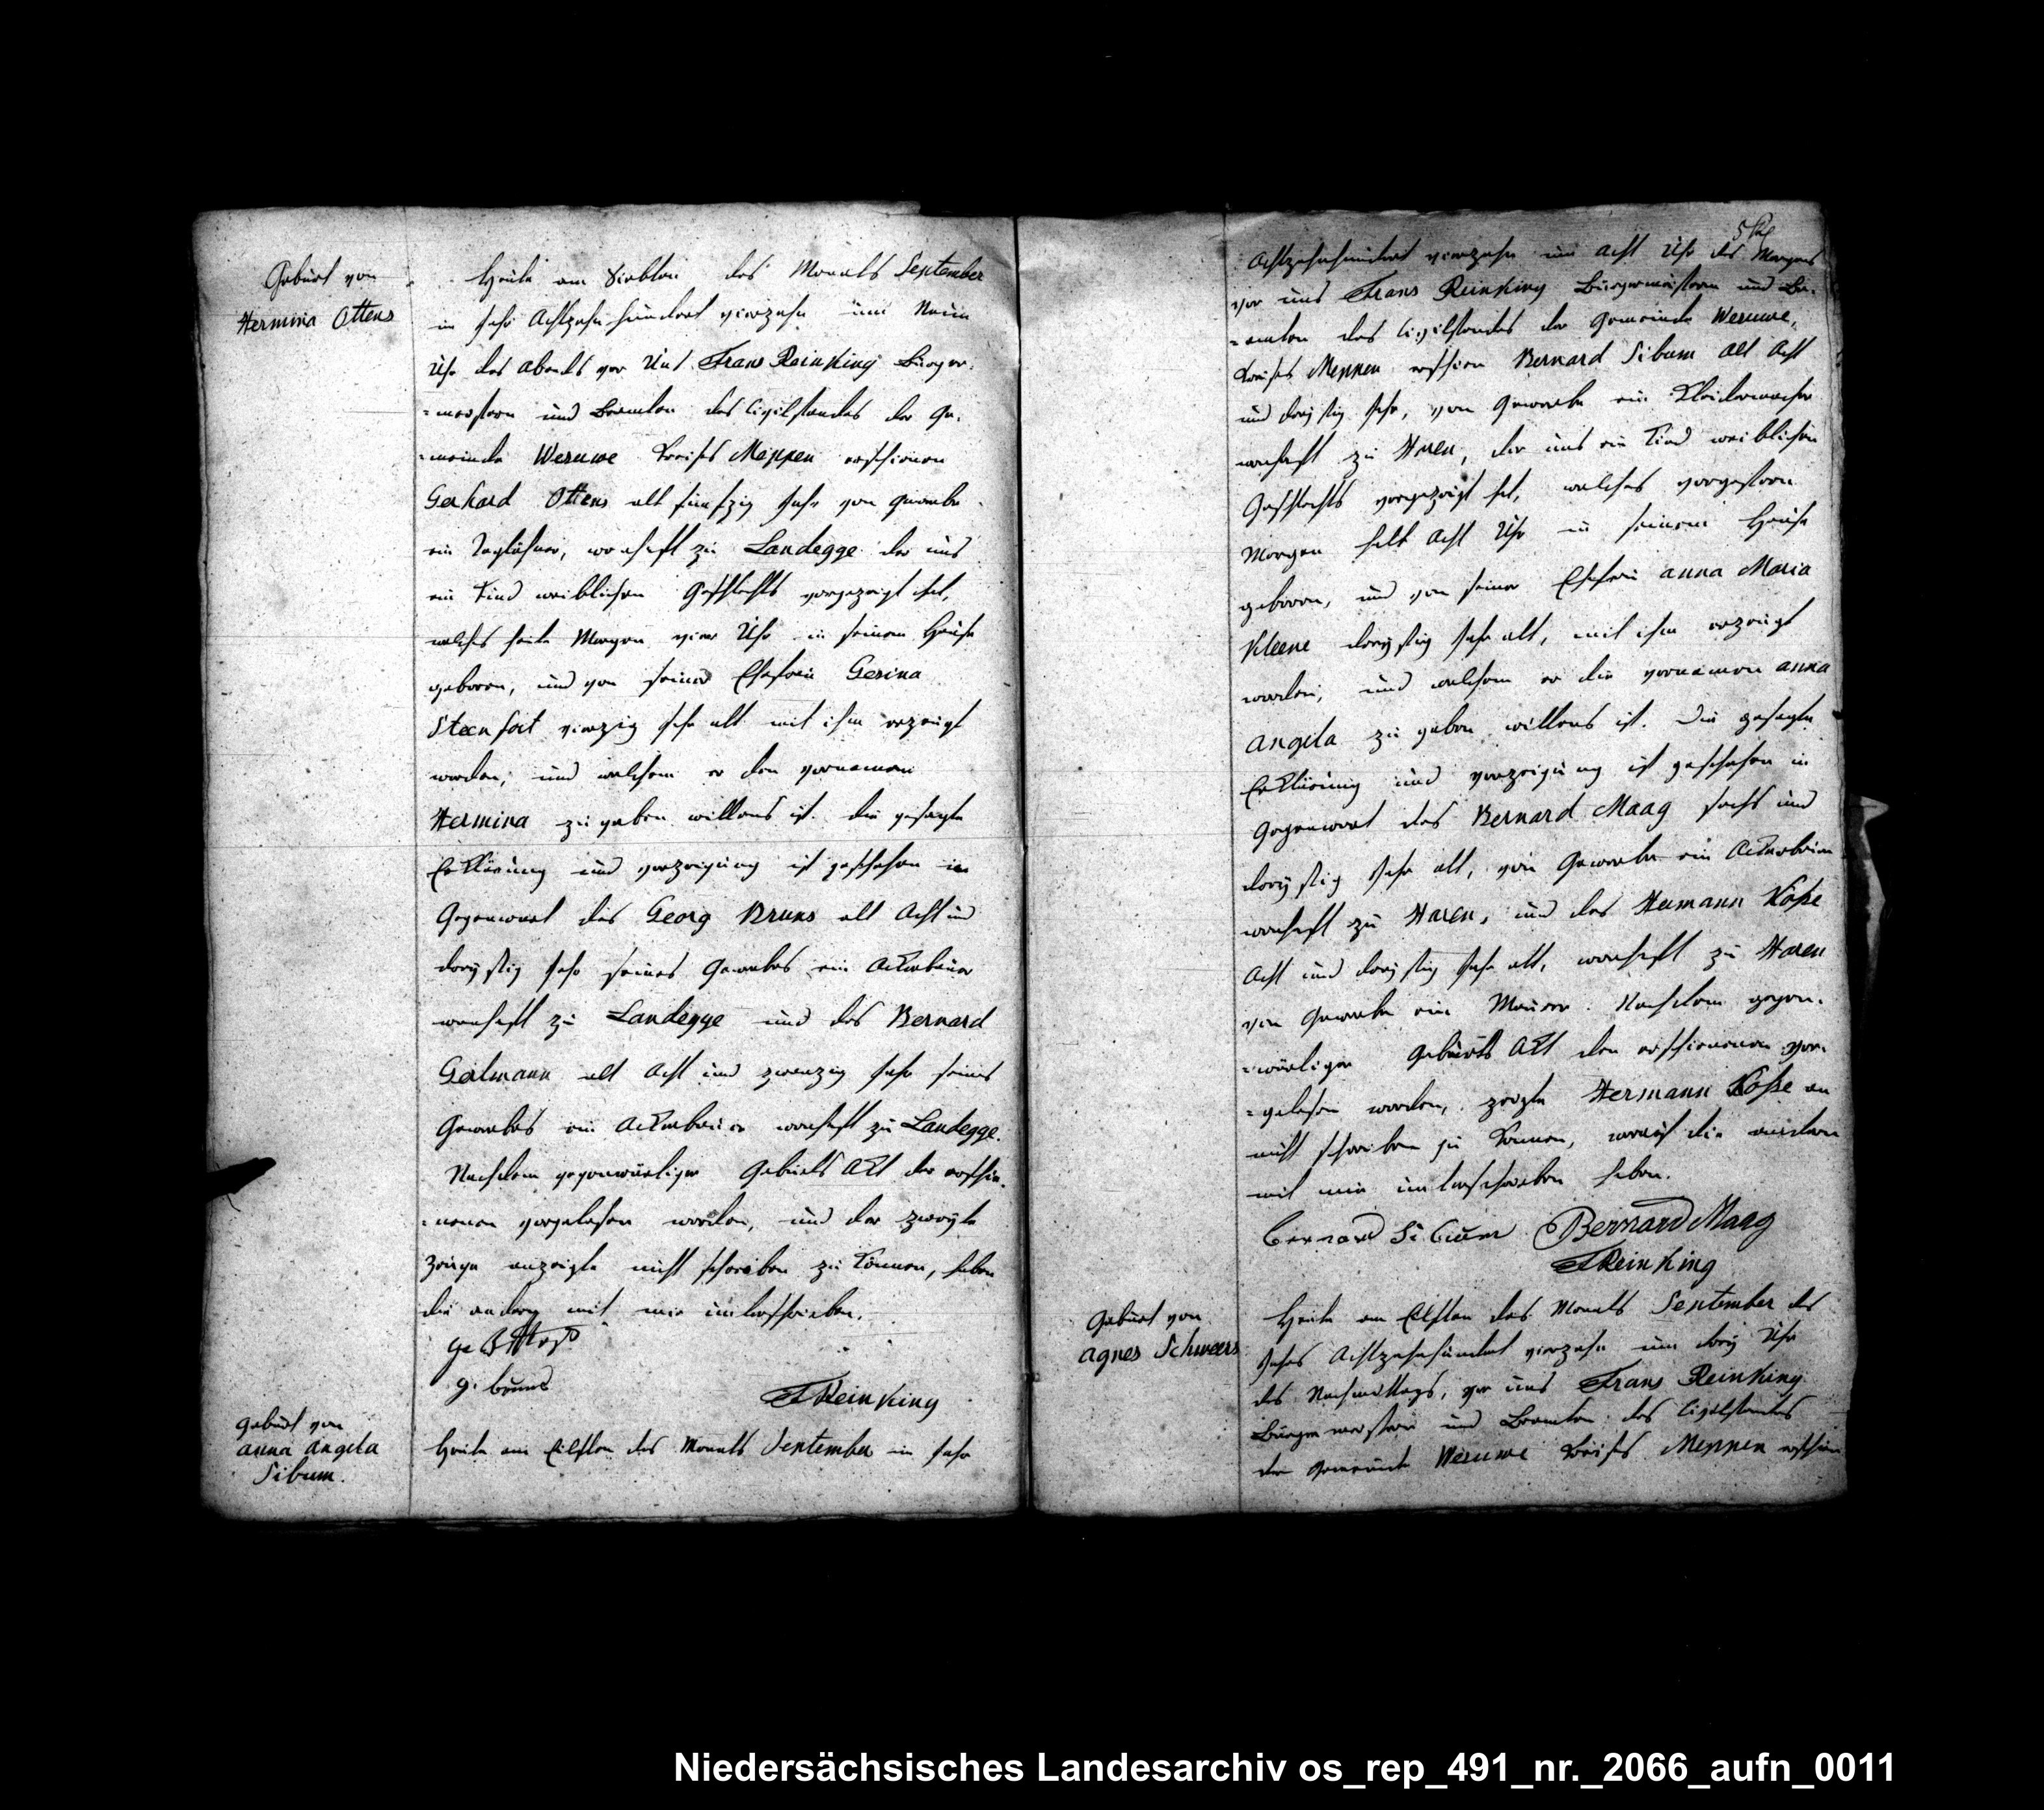 Geburt von
Hermina Ottens
Heute am Siebten des Monats September
im Jahr Achtzehn hundert vierzehn um Neun
Uhr des Abends vor Uns Frans Reinking Bürger-
=meistern und Beamten des Civilstandes der Ge-
=meinde Wesuwe Kreises Meppen erschienen
Gerhard Ottens alt fünfzig Jahr von Gewerbe
ein Taglöhner, wonhaft zu Landegge der uns
ein Kind weiblichen Geschlechts vorgezeigt hat,
welches heute Morgen vier Uhr in seinem Hause
geboren, und von seiner Ehefrau Gesina
Steenfort vierzig Jahr alt mit ihm erzeugt
worden, und welchem er den vornamen
Hermina zu geben willens ist. die gesagte
Erklärung und vorzeigung ist geschehen in
Gegenwart des Georg Bruns alt Acht und
dreÿstig Jahr seines Gewerbes ein Ackerbauer
wonhaft zu Landegge und des Bernard
Geelmann alt Acht und zwanzig Jahr seines
Gewerbes ein Ackerbauer wonhaft zu Landegge.
Nachdem gegenwärtiger Geburts Akt der erschie-
=nenen vorgelesen worden, und der zweÿte
Zeuge anzeigte nicht schreiben zu können, haben
die andern mit mir unterschrieben.
g. bruns
FReinking
Geburt von
Anna Angela
Sibum.
Heute am Eilften des Monats September im Jahr
Achtzehnhundert vierzehn um Acht Uhr des Morgens
vor uns Frans Reinking Bürgermeistern und Be-
=amten des Civilstandes der Gemeinde Wesuwe,
Kreises Meppen erschien Bernard Sibum alt Acht
und dreÿstig Jahr, von Gewerbe ein Kleidermacher
wonhaft zu Haren, der uns ein Kind weiblichen
Geschlechts vorgezeigt hat, welches vorgestern
Morgen halb Acht Uhr in seinem Hause
geboren, und von seiner Ehefrau Anna Maria
Kleene dreÿstig Jahr alt, mit ihm erzeugt
worden, und welchem er die vornamen Anna
Angela zu geben willens ist. Die gesagte
Erklärung und vorzeigung ist geschehen in
Gegenwart des Bernard Maag sechs und
dreÿstig Jahr alt, von Gewerbe ein Ackerbauer
wonhaft zu Haren, und des Hermann Koße
Acht und dreÿstig Jahr alt, wonhaft zu Haren
von Gewerbe ein Maurer. Nachdem gegen-
=wärtiger Geburts Akt den erschienenen vor-
=gelesen worden, zeigte Hermann Koße an
nicht schreiben zu können, worauf die andern
mit mir unterschrieben haben.
Bernard Sibum Bernard Maag
FReinking
Geburt von
Agnes Schweers
Heute am Eilften des Monats September des
Jahrs Achtzehnhundert vierzehn um dreÿ Uhr
des Nachmittags, vor uns Frans Reinking
Bürgermeistern und Beamten des Civilstandes
der Gemeinde Wesuwe Kreises Meppen erschien
Niedersächsisches Landesarchiv os_rep_491_nr._2066_aufn_0011